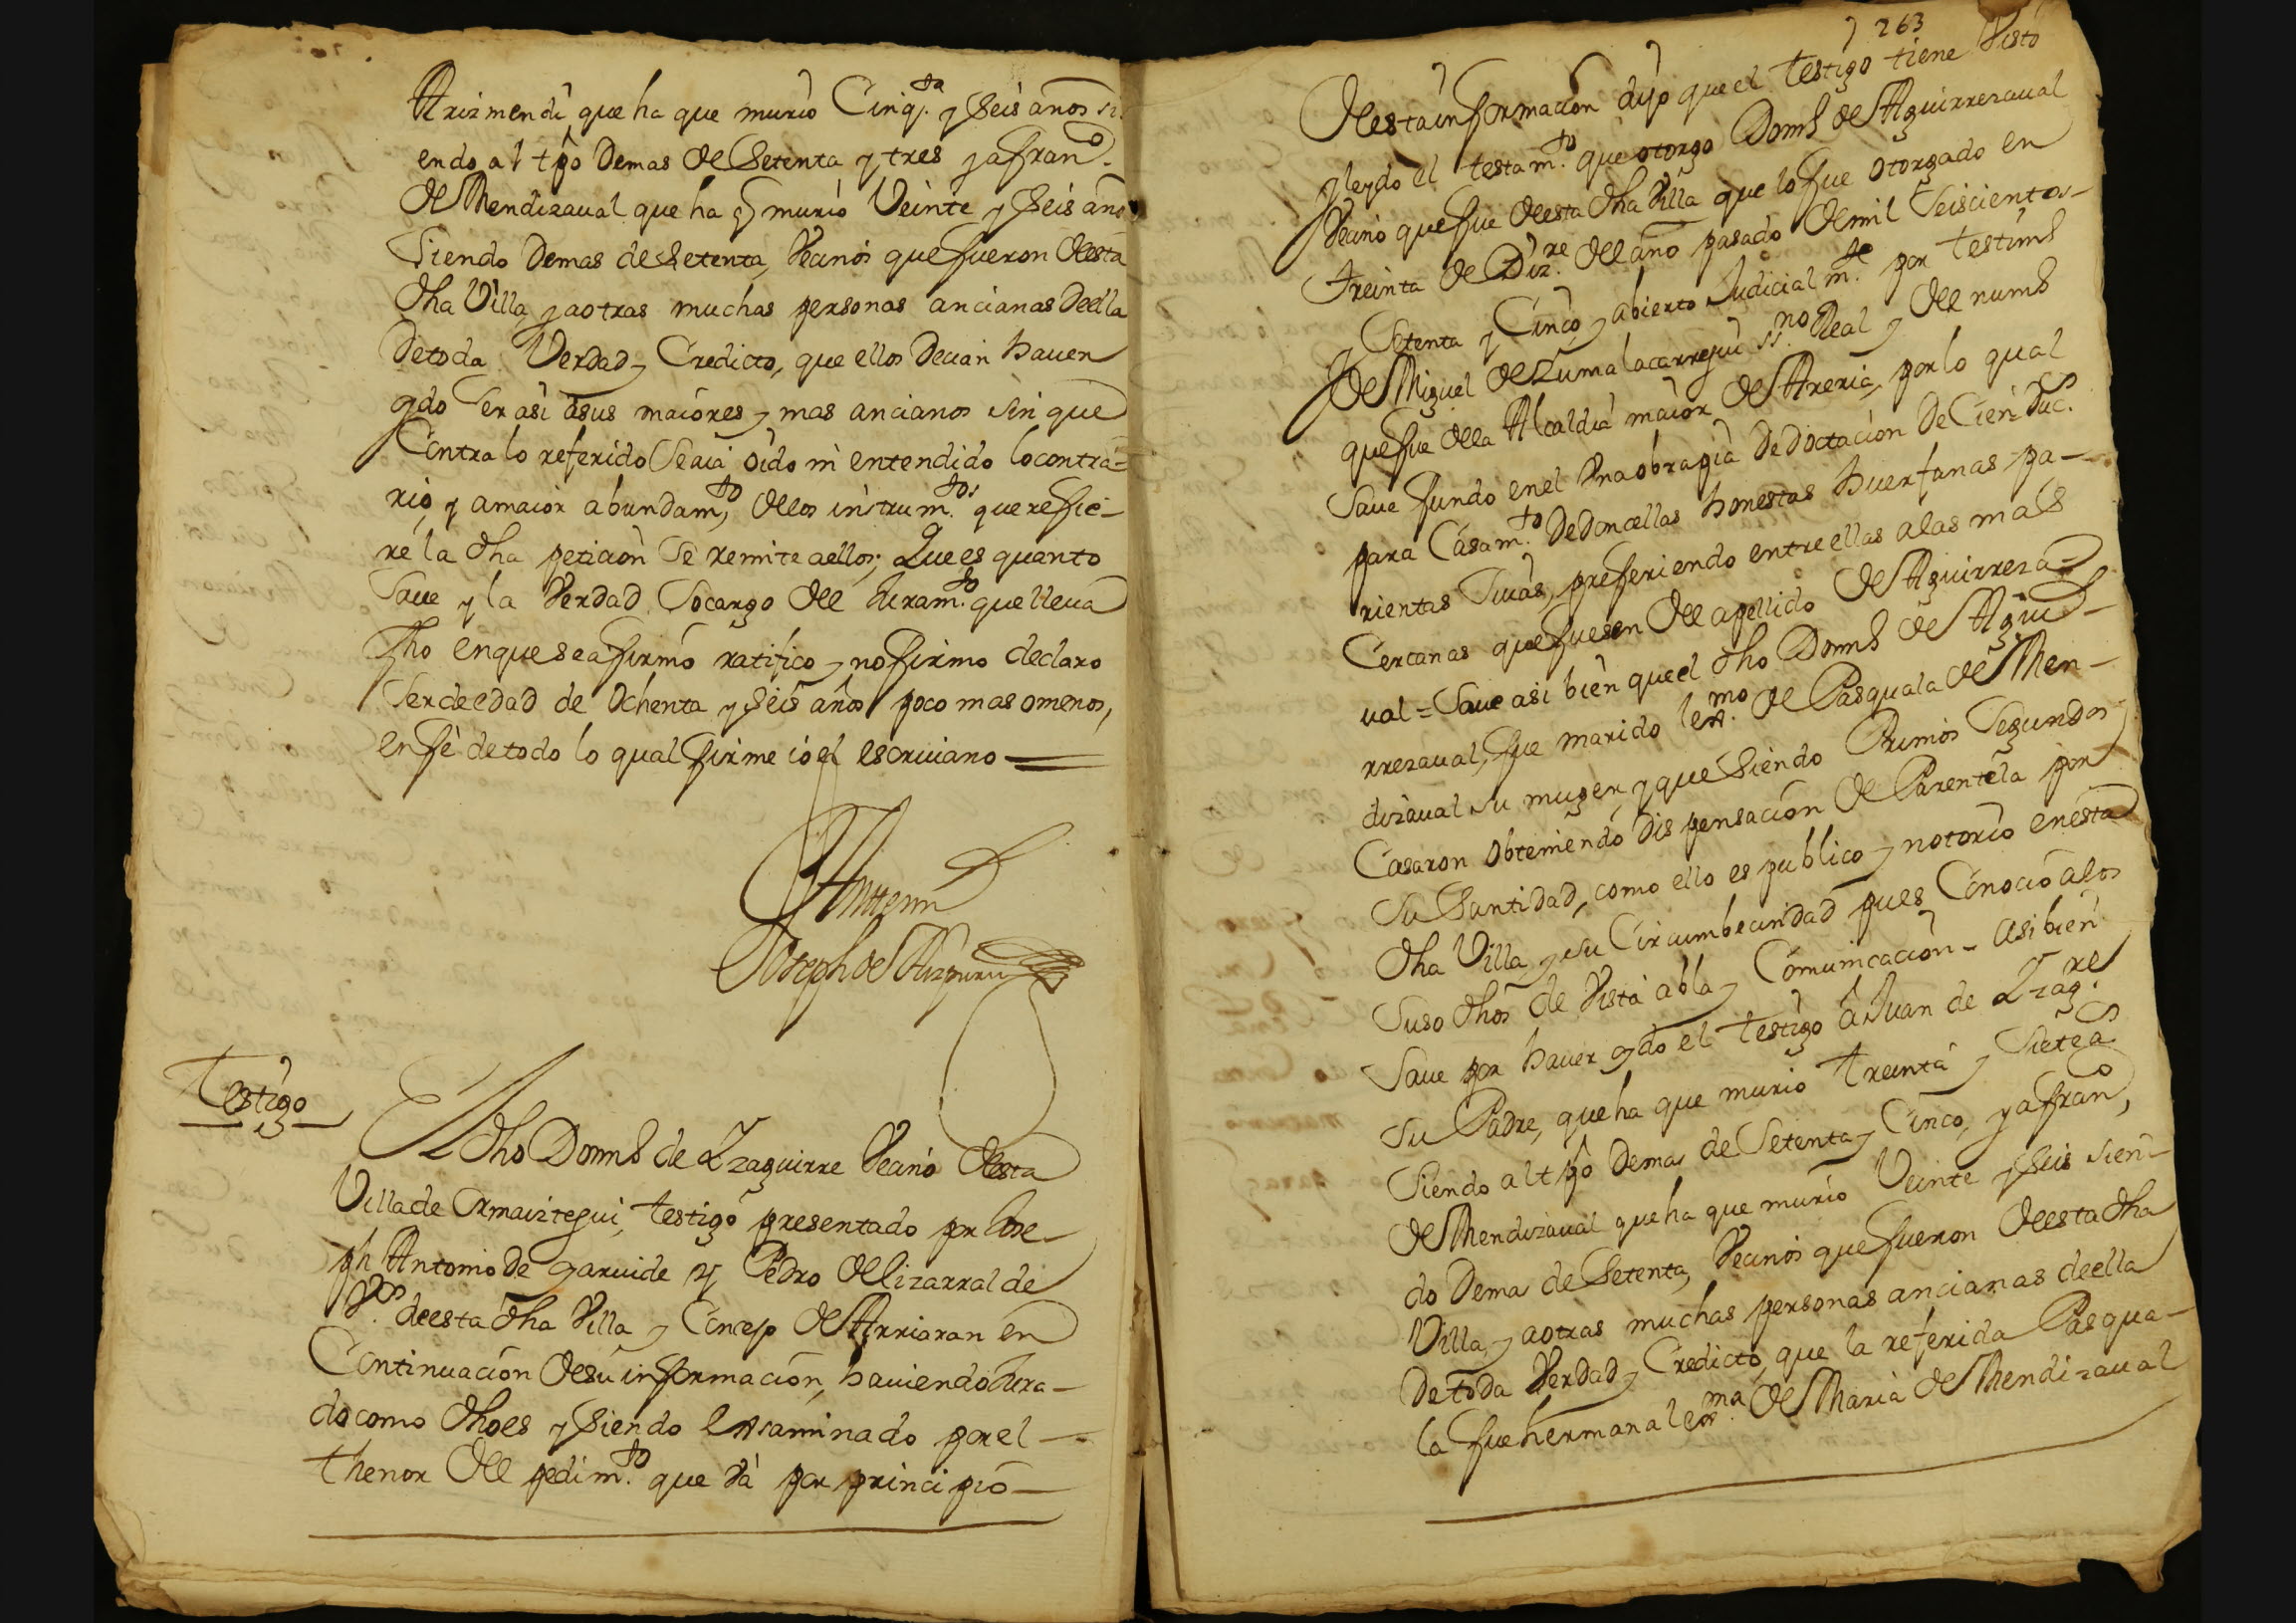 Arizmendi que ha que murio Cinq.ta y seis años si-
endo al tpo demas de setenta y tres y a fran.co
de Mendizaual que ha q murio Veinte y seis años
siendo demas de setenta, Vecinos que fueron desta
dha Villa, y a otras muchas personas ancianas de ella
de toda Verdad y Credicto, que ellos decian hauen
oydo ser asi a sus maiores y mas ancianos sin que
Contra lo referido se aia oido ni entendido lo contra=
rio, y a maior abundam.to de los instrum.tos que refie-
re la dha peticion se remite a ellos; Que es quanto
saue y la Verdad socargo del Juram.to que lleua
fho en que se afirmo ratifico y no firmo declaro
ser de edad de Ochenta y seis años poco mas o menos,
en fe de todo lo qual firme io el escriuano
Ante mi
Joseph de Aizpuru
Testigo
El dho Dom.o de Yzaguirre Vecino desta
Villa de Ormaiztegui, testigo presentado pr Jose-
ph Antonio de garuide y Pedro de lizarralde
V.os de esta dha Villa y Concejo de Arriaran en
Continuacion de su informacion, hauiendo Jura-
do como dho es y siendo Exsaminado por el
thenor del pedim.to que va por principio
263
de esta informacion dijo que el testigo tiene Visto
y leydo el testam.to que otorgo Dom.o de Aguirrezaual
Vecino que fue de esta dha Villa que lo fue otorgado en
treinta de Diz.re del año pasado de mil seiscientos
y setenta y Cinco, y abierto Judicialm.te por testim.o
de Miguel de Zumalacarregui ss.no Real y del num.o
que fue de la Alcaldia maior de Areria, por lo qual
saue fundo en el Una obrapia de doctacion de Cien Duc.s
para Casam.to de doncellas honestas huerfanas pa-
rientas suias, prefiriendo entre ellas a las mas
Cercanas que fuesen del apellido de Aguirreza=
ual = Saue asi bien que el dho Dom.o de Agui-
rrezaual, fue marido lex.mo de Pasquala de Men-
dizaual su muger, y que siendo Primos Segundos
Casaron obteniendo dispensacion de Parentela por
su Santidad, como ello es publico y notorio en esta
dha Villa y su Circumbecindad pues Conocio a los
suso dhos de Vista abla y Comunicacion - asi bien
saue por hauer oydo el testigo a Juan de Yzag.re
su Padre, que ha que murio treinta y siete a.s
siendo al tpo demas de setenta y Cinco, y a fran.co
de Mendizaual que ha que murio Veinte y seis sien-
do demas de setenta, Vecinos que fueron de esta dha
Villa, y a otras muchas personas ancianas de ella
de toda Verdad y Credicto, que la referida Pasqua-
la fue hermana lex.ma de Maria de Mendizaual